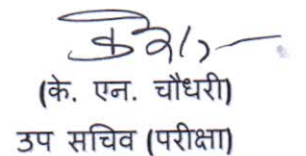 (के. एन. चौधरी)
उप सचिव (परीक्षा)